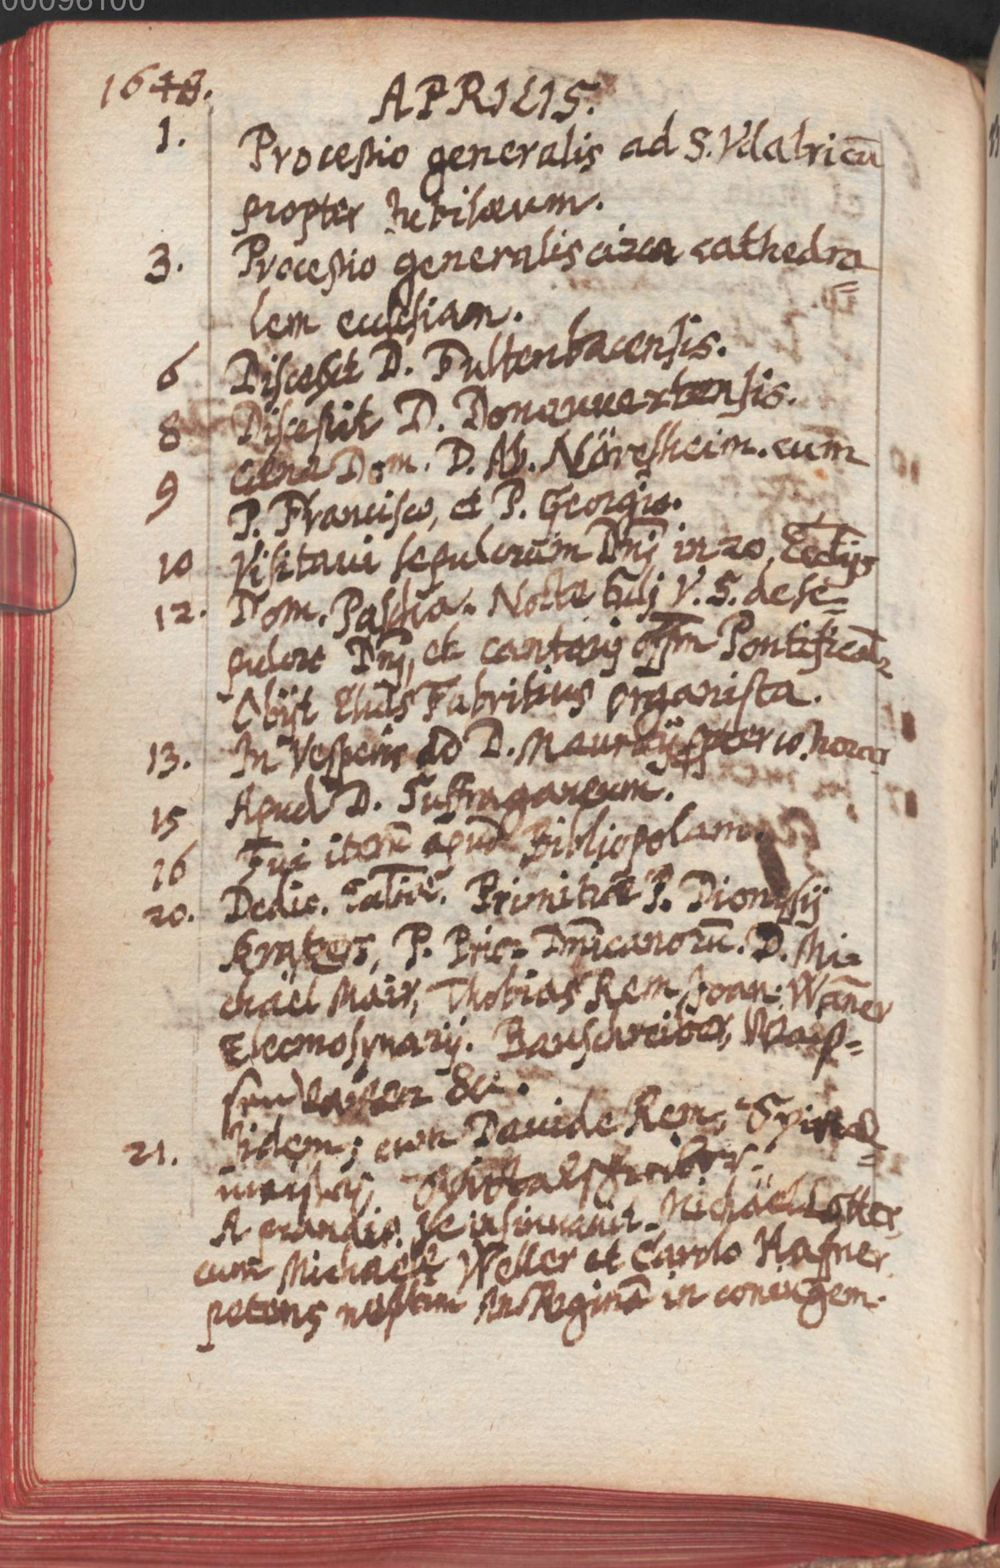 00096100
1648. APRILIS.
1. Processio generalis ad S. Vdalricū
propter Jubilæum.
3. Processio generalis circa cathedra=
lem ecclesiam.
6 Discessit D. Fultenbacensis.
8 Discessit D. Donauuertensis.
9 cena Dom. D. Ab. Nöresheim. cum
P. Francisco, et P. Georgio.
10 Visitaui sepulcrum Dnj in 20
12. Dom. Paschæ. Nocte V. S. de se=
pulcro Dnj, et cantauj Pontifical.
Obijt Fabritius organista.
13. In Vesperis D. Mauritij
15 Apud D. Suffraganeum.
16 Fui iterū apud Bibliopolam.
20. Dedic. Primitiæ P. Dionysij
P. Prior Dnicanorū. D. Mi=
chael Mair, Thobias Rem, Joan: Wañer
Eleemosynarij. Bauschreiber,
&c.
21. Jidem; cum Dauide Rem,
A prandio se insinuauit Michäel Lotter
cum Michaele Weller et Carolo Hafner
petens neptim Reginā in coniugem.